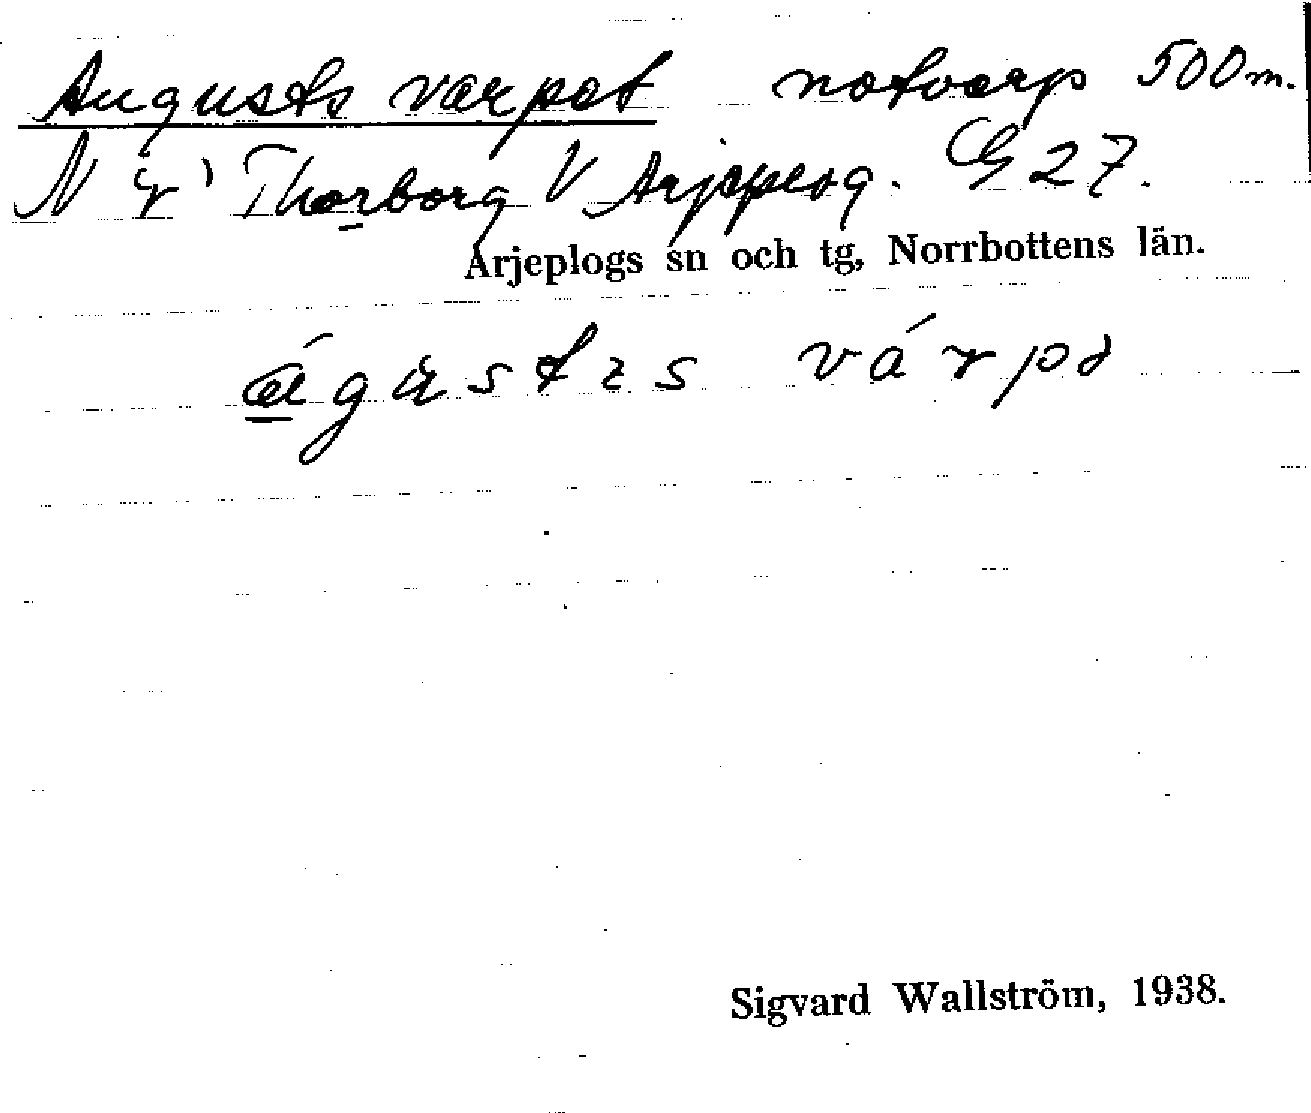 Augusts varpet notvarp 500 m.
N Thorborg V Arjeplog. G 27.
Arjeplogs sn och tg, Norrbottens län.
Sigvard Wallström, 1938.